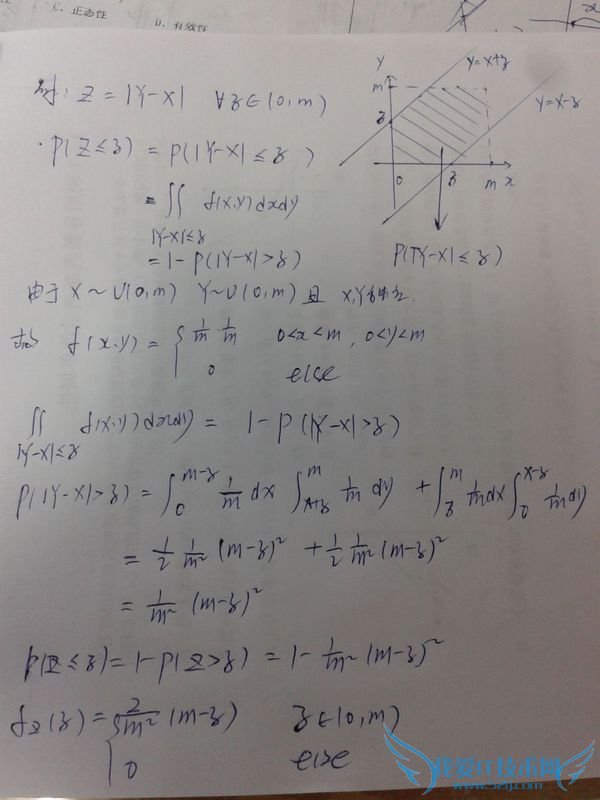 C、正态性
D、有效性
Z = |Y-X| ∀z∈(0,m)
P(Z≤z) = P(|Y-X|≤z)
= ∬ f(x,y)dxdy
|Y-X|≤z
= 1-P(|Y-X|>z)
y
m
z
0
z
m
x
y=x+z
y=x-z
P(|Y-X|≤z)
由于 X~U(0,m) Y~U(0,m) 且 X,Y
故 f(x,y) = { 1/m · 1/m 0<x<m, 0<y<m
0 else
∬ f(x,y)dxdy = 1-P(|Y-X|>z)
|Y-X|≤z
P(|Y-X|>z) = ∫_0^{m-z} 1/m dx ∫_{x+z}^m 1/m dy + ∫_z^m 1/m dx ∫_0^{x-z} 1/m dy
= 1/2 1/m² (m-z)² + 1/2 1/m² (m-z)²
= 1/m² (m-z)²
P(Z≤z) = 1-P(Z>z) = 1- 1/m² (m-z)²
f_Z(z) = { 2/m² (m-z) z∈(0,m)
0 else
我爱IT技术网